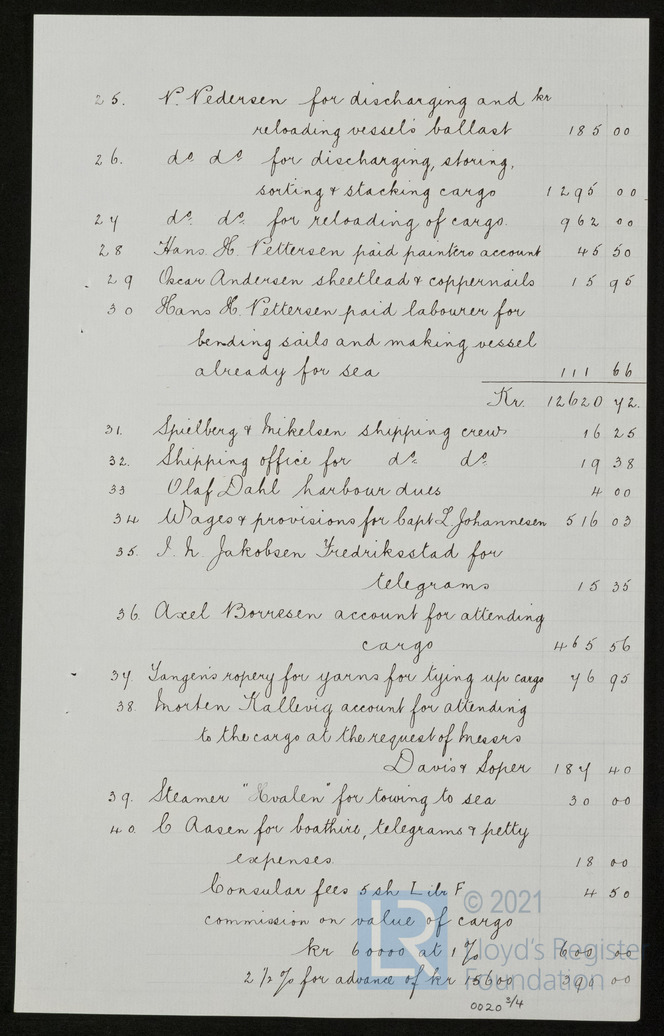 25. N. Nedersen for discharging and kr
reloading vessel's ballast 185 00
26. do do for discharging, storing,
sorting & stacking cargo 1295 00
27 do. do. for reloading of cargo. 962 00
28 Hans. H. Pettersen paid painters account 45 50
29 Oscar Andersen sheetlead & coppernails 15 95
30 Hans H. Pettersen paid labourer for
bending sails and making vessel
already for sea 111 66
Kr. 12620 72.
31. Spielberg & Mikelsen shipping crew 16 25
32. Shipping office for do do 19 38
33 Olaf Dahl harbour dues 4 00
34 Wages & provisions for Capt L. Johannesen 516 03
35. I. N. Jakobsen Fredriksstad for
telegrams 15 35
36. Axel Borresen account for attending
cargo 465 56
37. Tangens ropery for yarns for tying up cargo 76 95
38. Morten Kallevig account for attending
to the cargo at the request of Messrs
Davis & Soper 187 40
39. Steamer "Hvalen" for towing to sea 30 00
40. C Aasen for boathire, telegrams & petty
expenses. 18 00
Consular fees 5 sh L ibr F 4 50
commission on value of cargo
kr 60000 at 1% 600 00
2 1/2 % for advance of kr 15600 390 00
0020 3/4
LR
© 2021
Lloyd's Register
Foundation